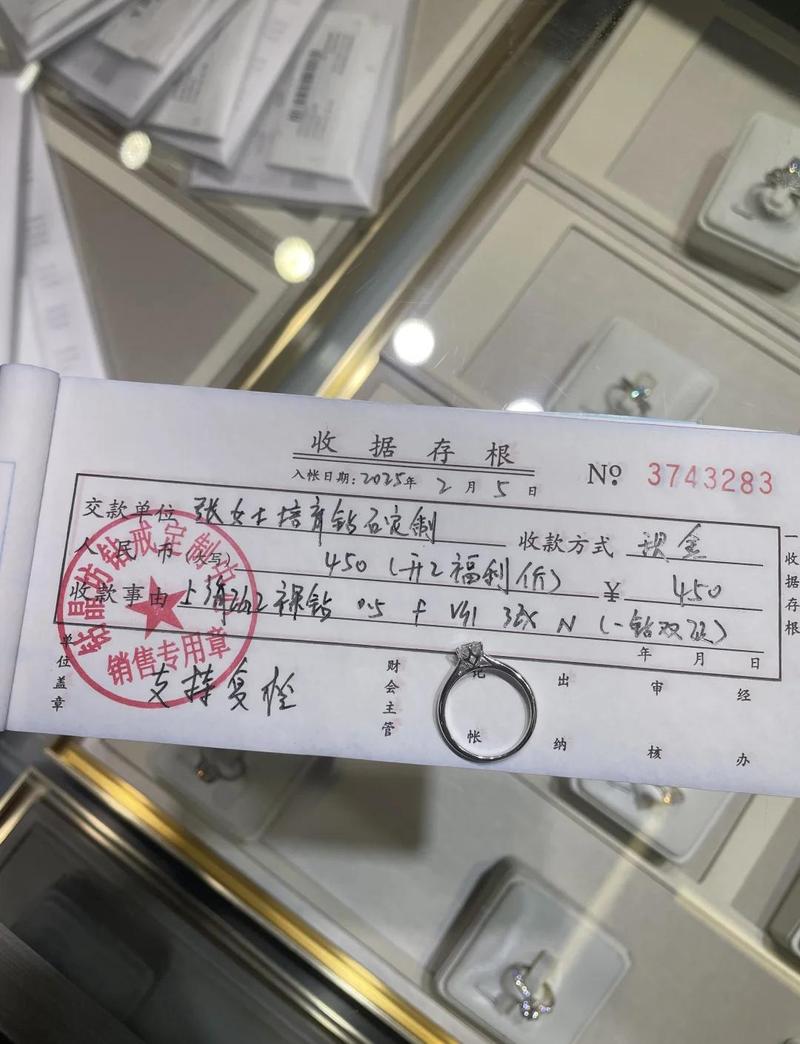 收据存根
入帐日期:2025年2月5日
No 3743283
交款单位 张女士培育钻石定制 收款方式 现金
人民币(大写) 450(开工福利价) ¥ 450
收款事由 上海 裸钻 0.5 F VS1 3EX N (一钻双证)
年 月 日
支持复检
单位盖章 财会主管 记帐 出纳 审核 经办
一收据存根
钻戒定制店
销售专用章